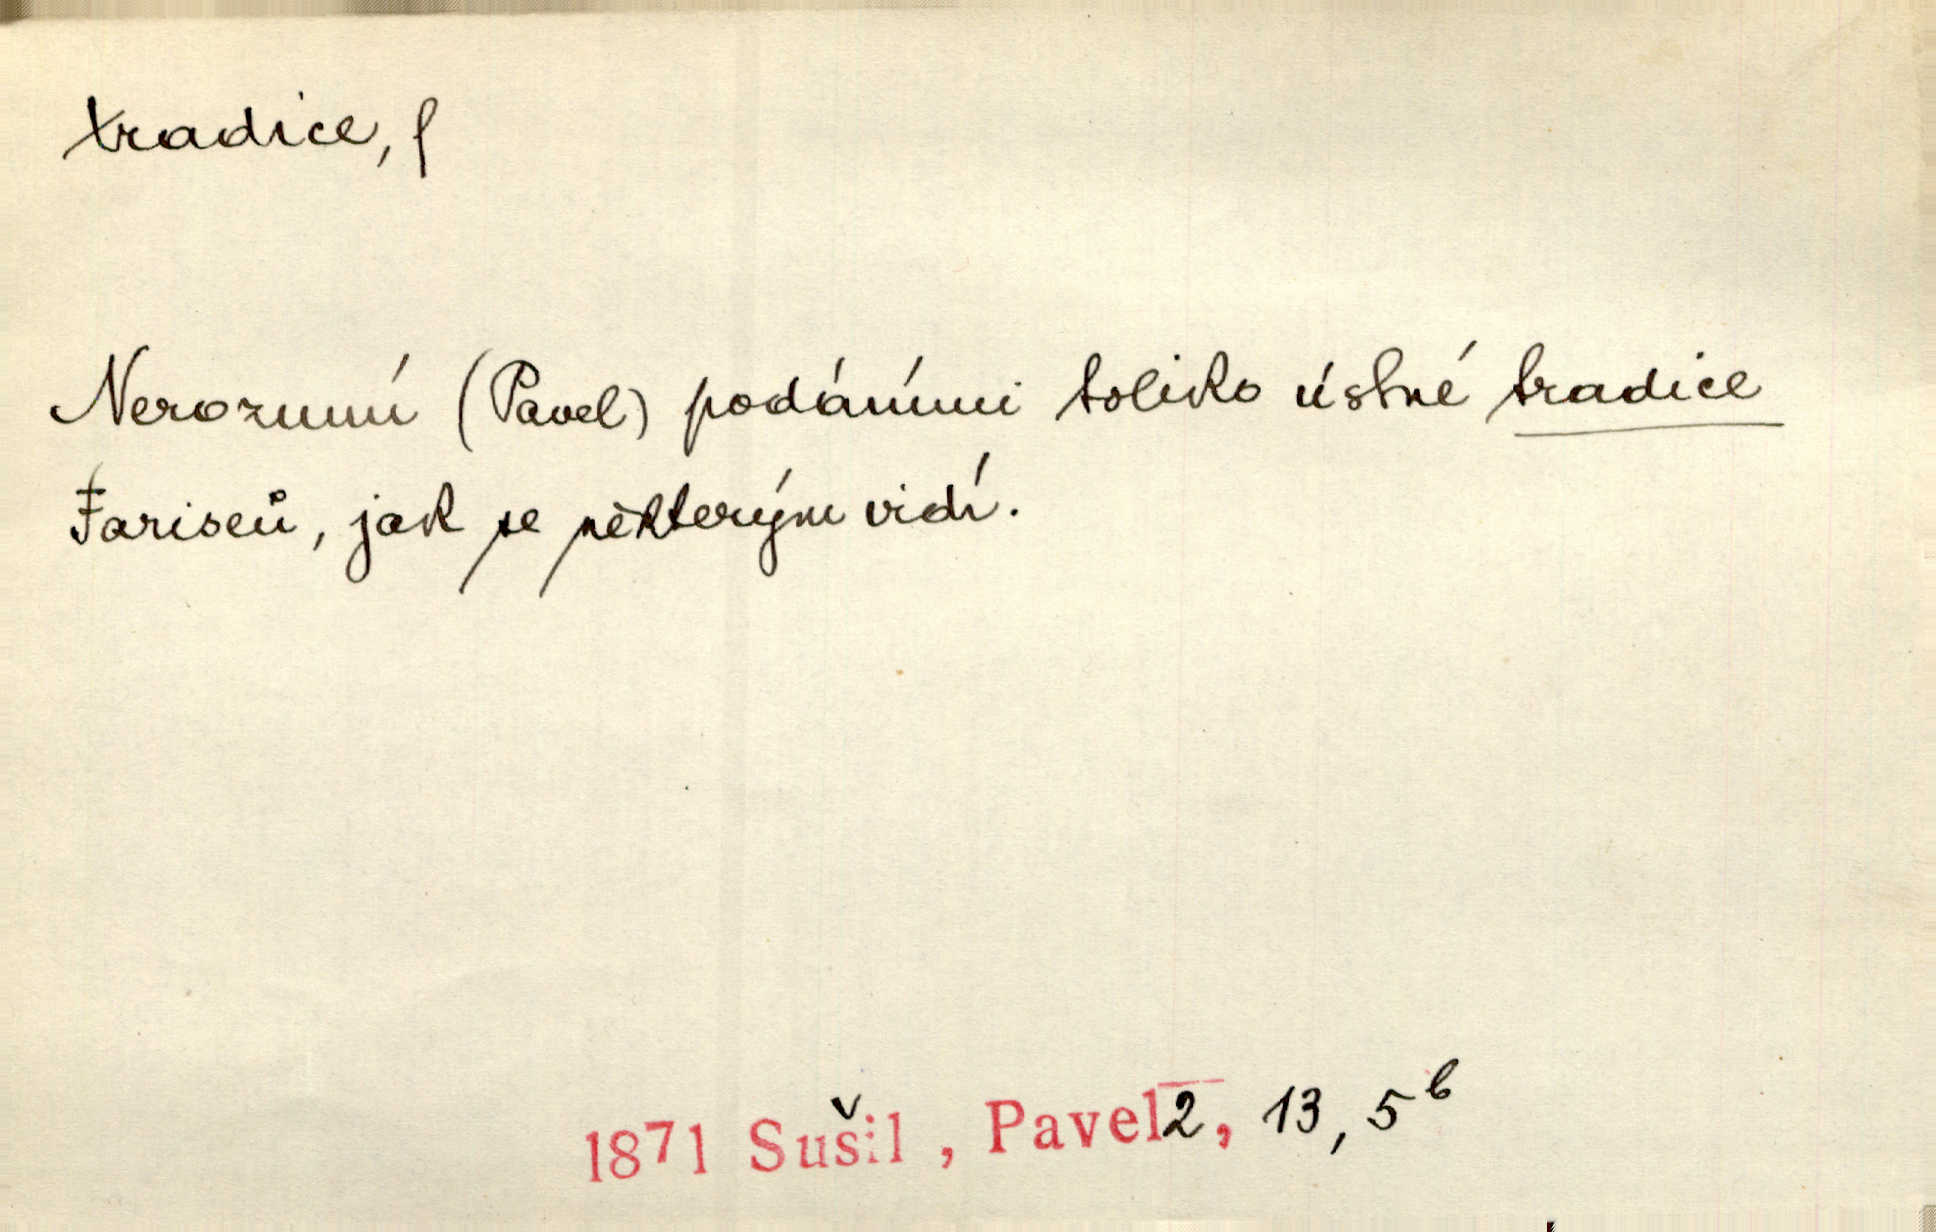 tradice, f
Nerozumí (Pavel) podáními toliko ústné tradice
Fariseů, jak se některým vidí.
1871 Sušil, Pavel 2, 13, 5 b